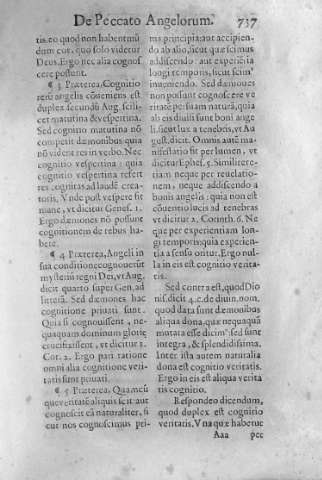 De Peccato Angelorum. 737
tis. eo quod non habent mũ
dum cor. quo solo videtur
Deus. Ergo nec alia cognos
cere possunt.
¶ 3 Præterea, Cognitio
rerũ angelis cõueniens est
duplex secundũ Aug. scili
cet matutina & vespertina.
Sed cognitio matutina nõ
competit dæmonibus quia
nõ vident res in verbo. Nec
cognitio vespertina: quia
cognitio vespertina refert
res cognitas ad laudẽ crea-
toris, Vnde post vespere fit
mane, vt dicitur Genes. 1.
Ergo dæmones nõ possunt
cognitionem de rebus ha-
bere.
¶ 4 Præterea, Angeli in
sua conditione cognouerũt
mysteriũ regni Dei, vt Aug.
dicit quarto super Gen. ad
litterã. Sed dæmones hac
cognitione priuati sunt.
Quia si cognouissent, ne-
quaquam dominum gloriæ
crucifixissent, vt dicitur 1.
Cor. 2. Ergo pari ratione
omni alia cognitione veri-
tatis sunt priuati.
¶ 5 Præterea, Quamcũ
que veritatẽ aliquis scit aut
cognoscit eã naturaliter, si
cut nos cognoscimus pri-
ma principia: aut accipien-
do ab alio, sicut quæ scimus
addiscendo aut experiẽtia
longi temporis, sicut scim⁹
inueniendo. Sed dæmones
non possunt cognoscere ve
ritatẽ per suam naturã, quia
ab eis diuisi sunt boni ange
li, sicut lux a tenebris, vt Au
gust. dicit. Omnis autẽ ma-
nifestatio fit per lumen, vt
dicitur Ephes. 5. Similiter e-
tiam neque per reuelatio-
nem, neque addiscendo a
bonis angelis: quia non est
cõuentio lucis ad tenebras
vt dicitur 2. Corinth. 6. Ne
que per experientiam lon-
gi temporis: quia experien-
tia a sensu oritur. Ergo nul-
la in eis est cognitio verita-
tis.
Sed contra est, quod Dio
nis. dicit 4. c. de diuin. nom.
quod data sunt dæmonibus
aliqua dona, quæ nequaquã
mutata esse dicim⁹ sed sunt
integra, & splendidissima.
Inter ista autem naturalia
dona est cognitio veritatis.
Ergo in eis est aliqua verita
tis cognitio.
Respondeo dicendum,
quod duplex est cognitio
veritatis, Vna quæ habetur
Aaa per